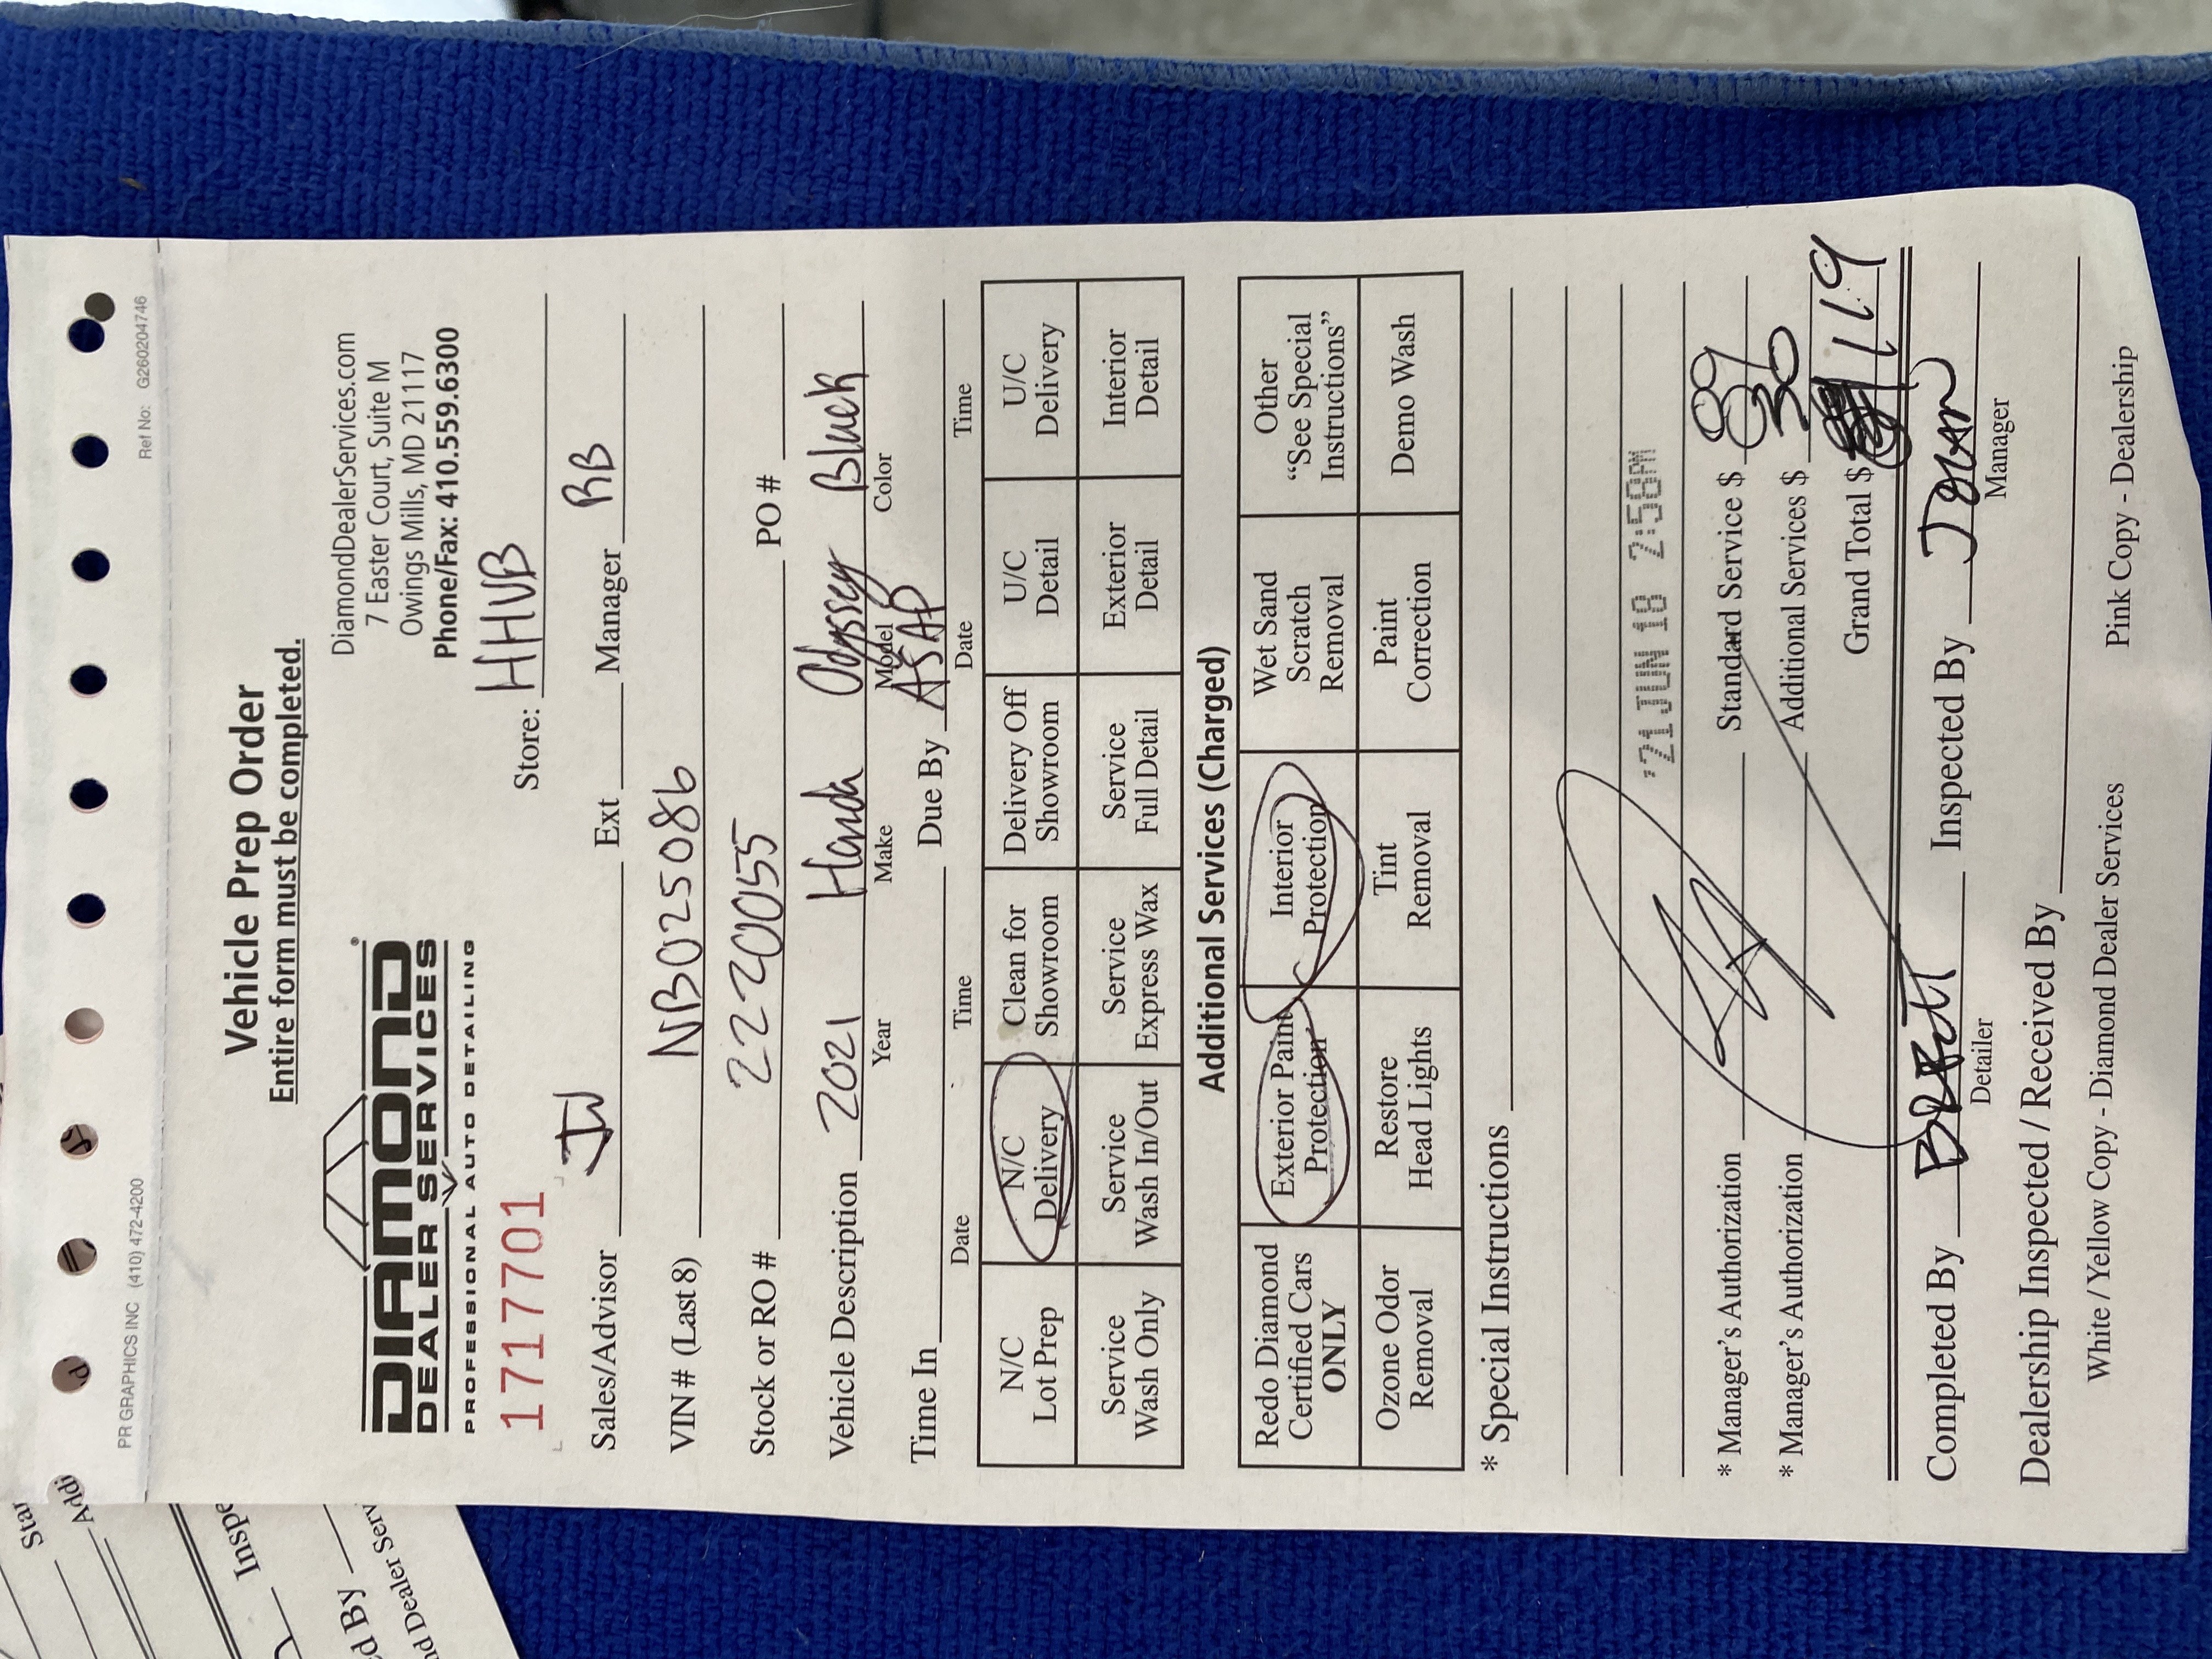 PR GRAPHICS INC (410) 472-4200 Ref No: G260204746
Vehicle Prep Order
Entire form must be completed.
DIAMOND
DEALER SERVICES
PROFESSIONAL AUTO DETAILING
DiamondDealerServices.com
7 Easter Court, Suite M
Owings Mills, MD 21117
Phone/Fax: 410.559.6300
1717701 Store: HHVB
Sales/Advisor JW Ext Manager RB
VIN# (Last 8) NB025086
Stock or RO # 22200155 PO #
Vehicle Description 2021 Honda Odyssey Black
Year Make Model Color
Time In Due By ASAP
Date Time Date Time
N/C Lot Prep N/C Delivery Clean for Showroom Delivery Off Showroom U/C Detail U/C Delivery
Service Wash Only Service Wash In/Out Service Express Wax Service Full Detail Exterior Detail Interior Detail
Additional Services (Charged)
Redo Diamond Certified Cars ONLY Exterior Paint Protection Interior Protection Wet Sand Scratch Removal Other "See Special Instructions"
Ozone Odor Removal Restore Head Lights Tint Removal Paint Correction Demo Wash
* Special Instructions
'21 JUN 18 2:58PM
* Manager's Authorization Standard Service $ 89
* Manager's Authorization Additional Services $ 30
Grand Total $ 119
Completed By Inspected By
Detailer Manager
Dealership Inspected / Received By
White / Yellow Copy - Diamond Dealer Services Pink Copy - Dealership
Star
Addi
Inspe
d By
nd Dealer Serv